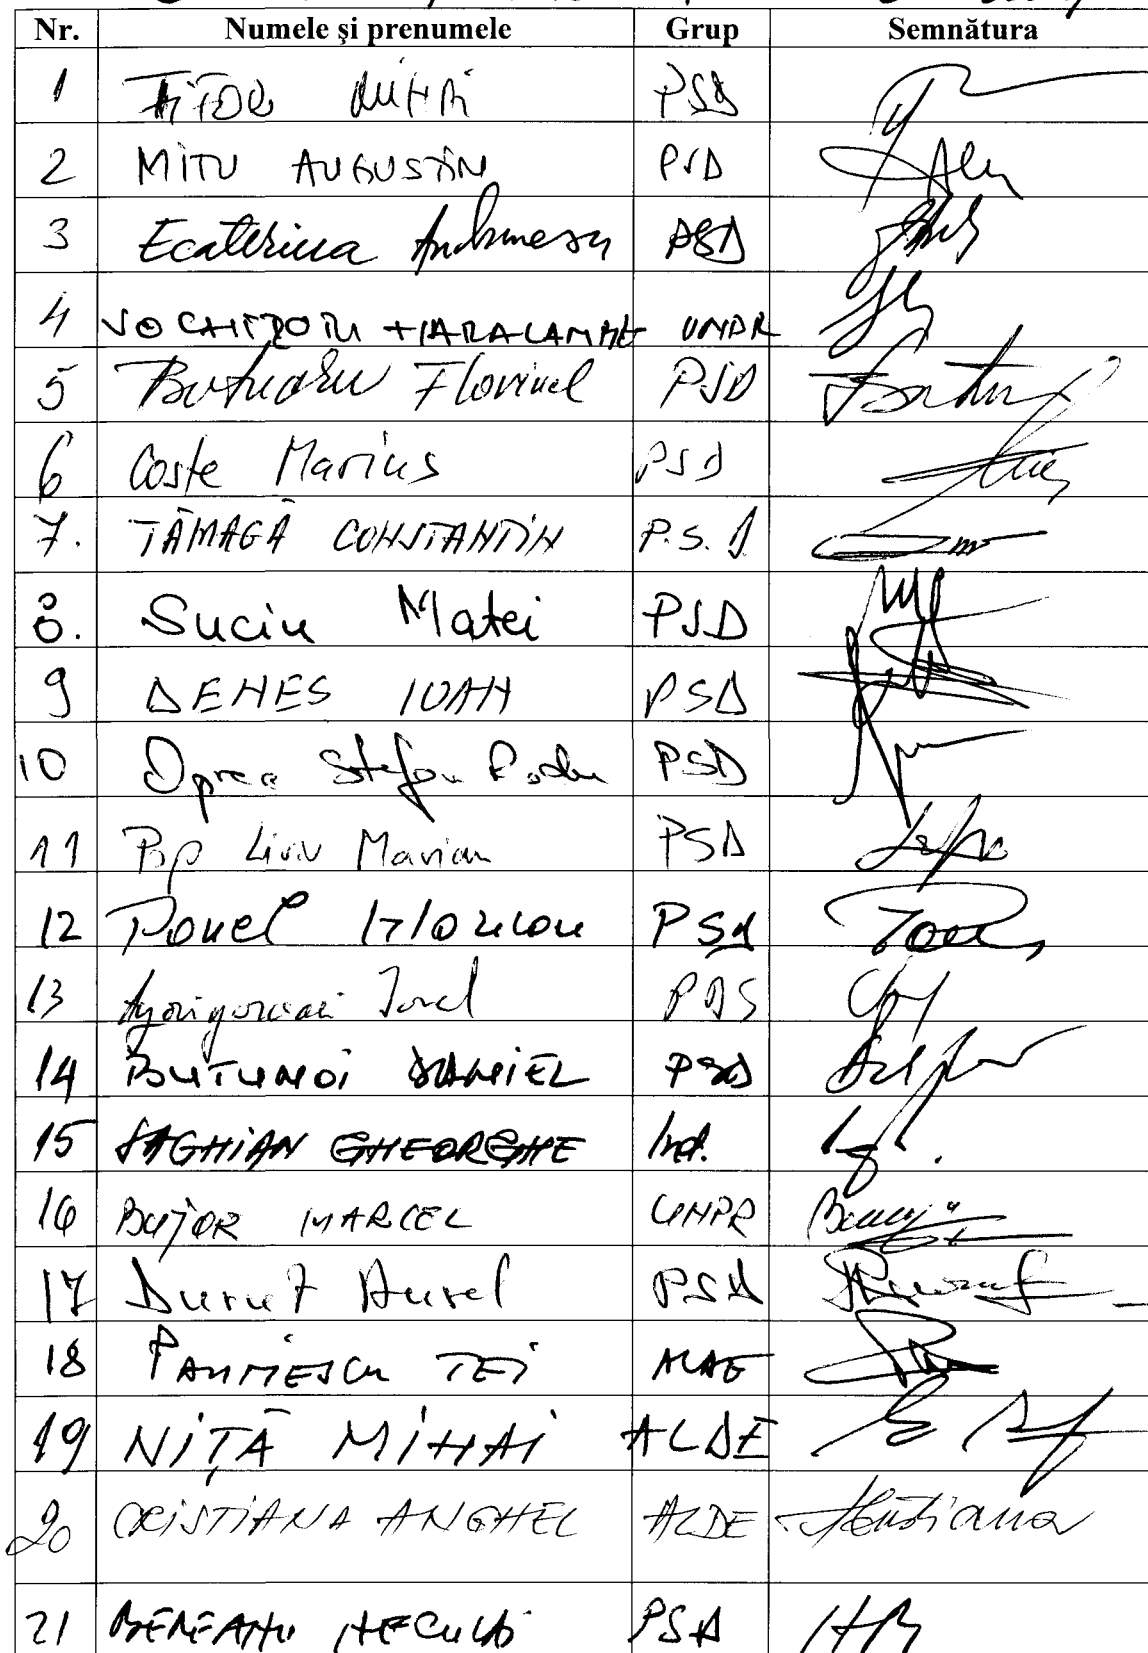 Nr. Numele şi prenumele Grup Semnătura
1 FIFOR MIHAI PSD
2 MITU AUGUSTIN PSD
3 Ecaterina Andronescu PSD
4 VOCHITOIU HARALAMBIE UNPR
5 Butunaru Florinel PSD
6 Coste Marius PSD
7. TĂMAGĂ CONSTANTIN P.S.D
8. Suciu Matei PSD
9 DENEȘ IOAN PSD
10 Oprea Stefan Radu PSD
11 Pop Liviu Marian PSD
12 Pavel Marian PSD
13 Agrigoroaei Ionel PDS
14 BUTUNOI DANIEL PSD
15 SAGHIAN GHEORGHE Ind.
16 BUJOR MARCEL UNPR
17 Duruț Aurel PSD
18 TEI ALDE
19 NIȚĂ MIHAI ALDE
20 CRISTIANA ANGHEL ALDE
21 BEREANU NECULAI PSD